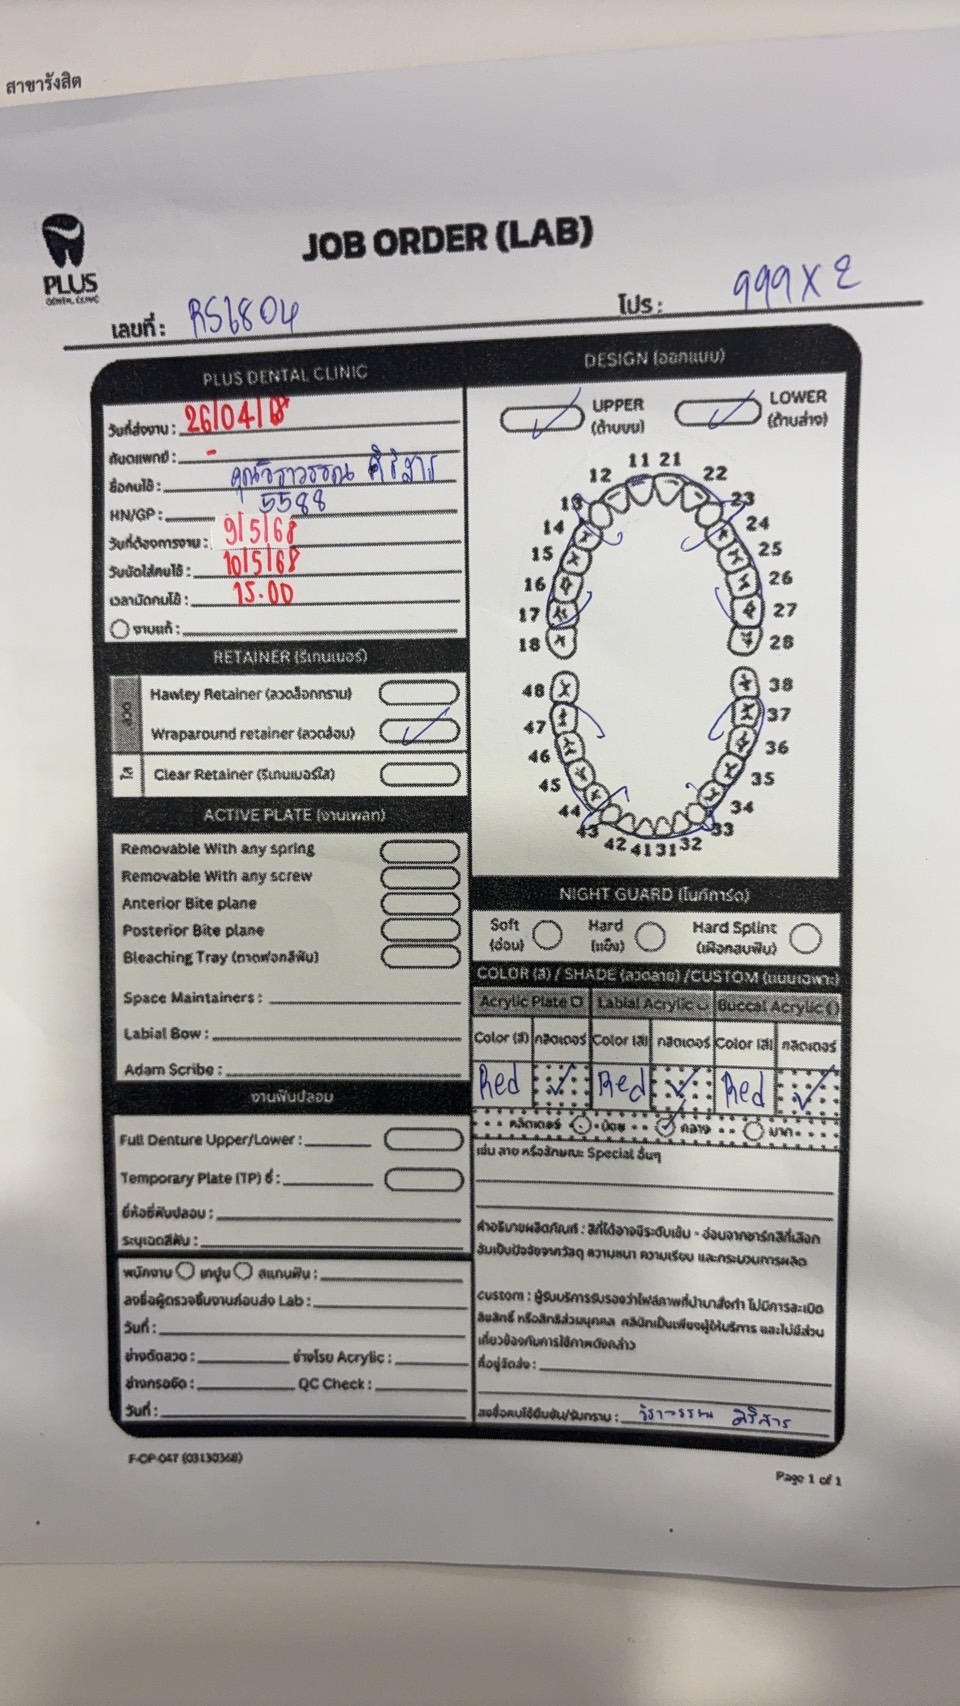 สาขารังสิต
PLUS
DENTAL CLINIC
JOB ORDER (LAB)
เลขที่ : RS6804
โปร : 999 X 2
PLUS DENTAL CLINIC
วันที่ส่งงาน : 26/04/68
ทันตแพทย์ : -
ชื่อคนไข้ : คุณวิราวรรณ ศิริสาร
HN/GP : 5588
วันที่ต้องการงาน : 9/5/68
วันนัดใส่คนไข้ : 10/5/68
เวลานัดคนไข้ : 15.00
งานแก้ :
RETAINER (รีเทนเนอร์)
ลวด
Hawley Retainer (ลวดล็อกกราม)
Wraparound retainer (ลวดอ้อม)
ใส
Clear Retainer (รีเทนเนอร์ใส)
ACTIVE PLATE (งานเพลท)
Removable With any spring
Removable With any screw
Anterior Bite plane
Posterior Bite plane
Bleaching Tray (ถาดฟอกสีฟัน)
Space Maintainers :
Labial Bow :
Adam Scribe :
งานฟันปลอม
Full Denture Upper/Lower :
Temporary Plate (TP) ซี่ :
ยี่ห้อซี่ฟันปลอม :
ระบุเฉดสีฟัน :
พนักงาน เทปูน สแกนฟัน :
ลงชื่อผู้ตรวจชิ้นงานก่อนส่ง Lab :
วันที่ :
ช่างดัดลวด : ช่างโรย Acrylic :
ช่างกรอขัด : QC Check :
วันที่ :
DESIGN (ออกแบบ)
UPPER
(ด้านบน)
LOWER
(ด้านล่าง)
11 21
12 22
13 23
14 24
15 25
16 26
17 27
18 28
48 38
47 37
46 36
45 35
44 34
43 33
42 41 31 32
NIGHT GUARD (ไนท์การ์ด)
Soft
(อ่อน)
Hard
(แข็ง)
Hard Splint
(เฝือกสบฟัน)
COLOR (สี) / SHADE (ลวดลาย) /CUSTOM (แบบเฉพาะ)
Acrylic Plate Labial Acrylic Buccal Acrylic
Color (สี) กลิตเตอร์ Color (สี) กลิตเตอร์ Color (สี) กลิตเตอร์
Red Red Red
กลิตเตอร์ น้อย กลาง มาก
เช่น ลาย หรือลักษณะ Special อื่นๆ
คำอธิบายผลิตภัณฑ์ : สีที่ได้อาจมีระดับเข้ม - อ่อนจากชาร์ทสีที่เลือก
อันเป็นปัจจัยจากวัสดุ ความหนา ความเรียบ และกระบวนการผลิต
custom : ผู้รับบริการรับรองว่าไฟล์ภาพที่นำมาสั่งทำ ไม่มีการละเมิด
ลิขสิทธิ์ หรือสิทธิส่วนบุคคล คลินิกเป็นเพียงผู้ให้บริการ และไม่มีส่วน
เกี่ยวข้องกับการใช้ภาพดังกล่าว
ที่อยู่จัดส่ง :
ลงชื่อคนไข้ยืนยัน/รับทราบ : วิราวรรณ ศิริสาร
F-OP-047 (03130368)
Page 1 of 1